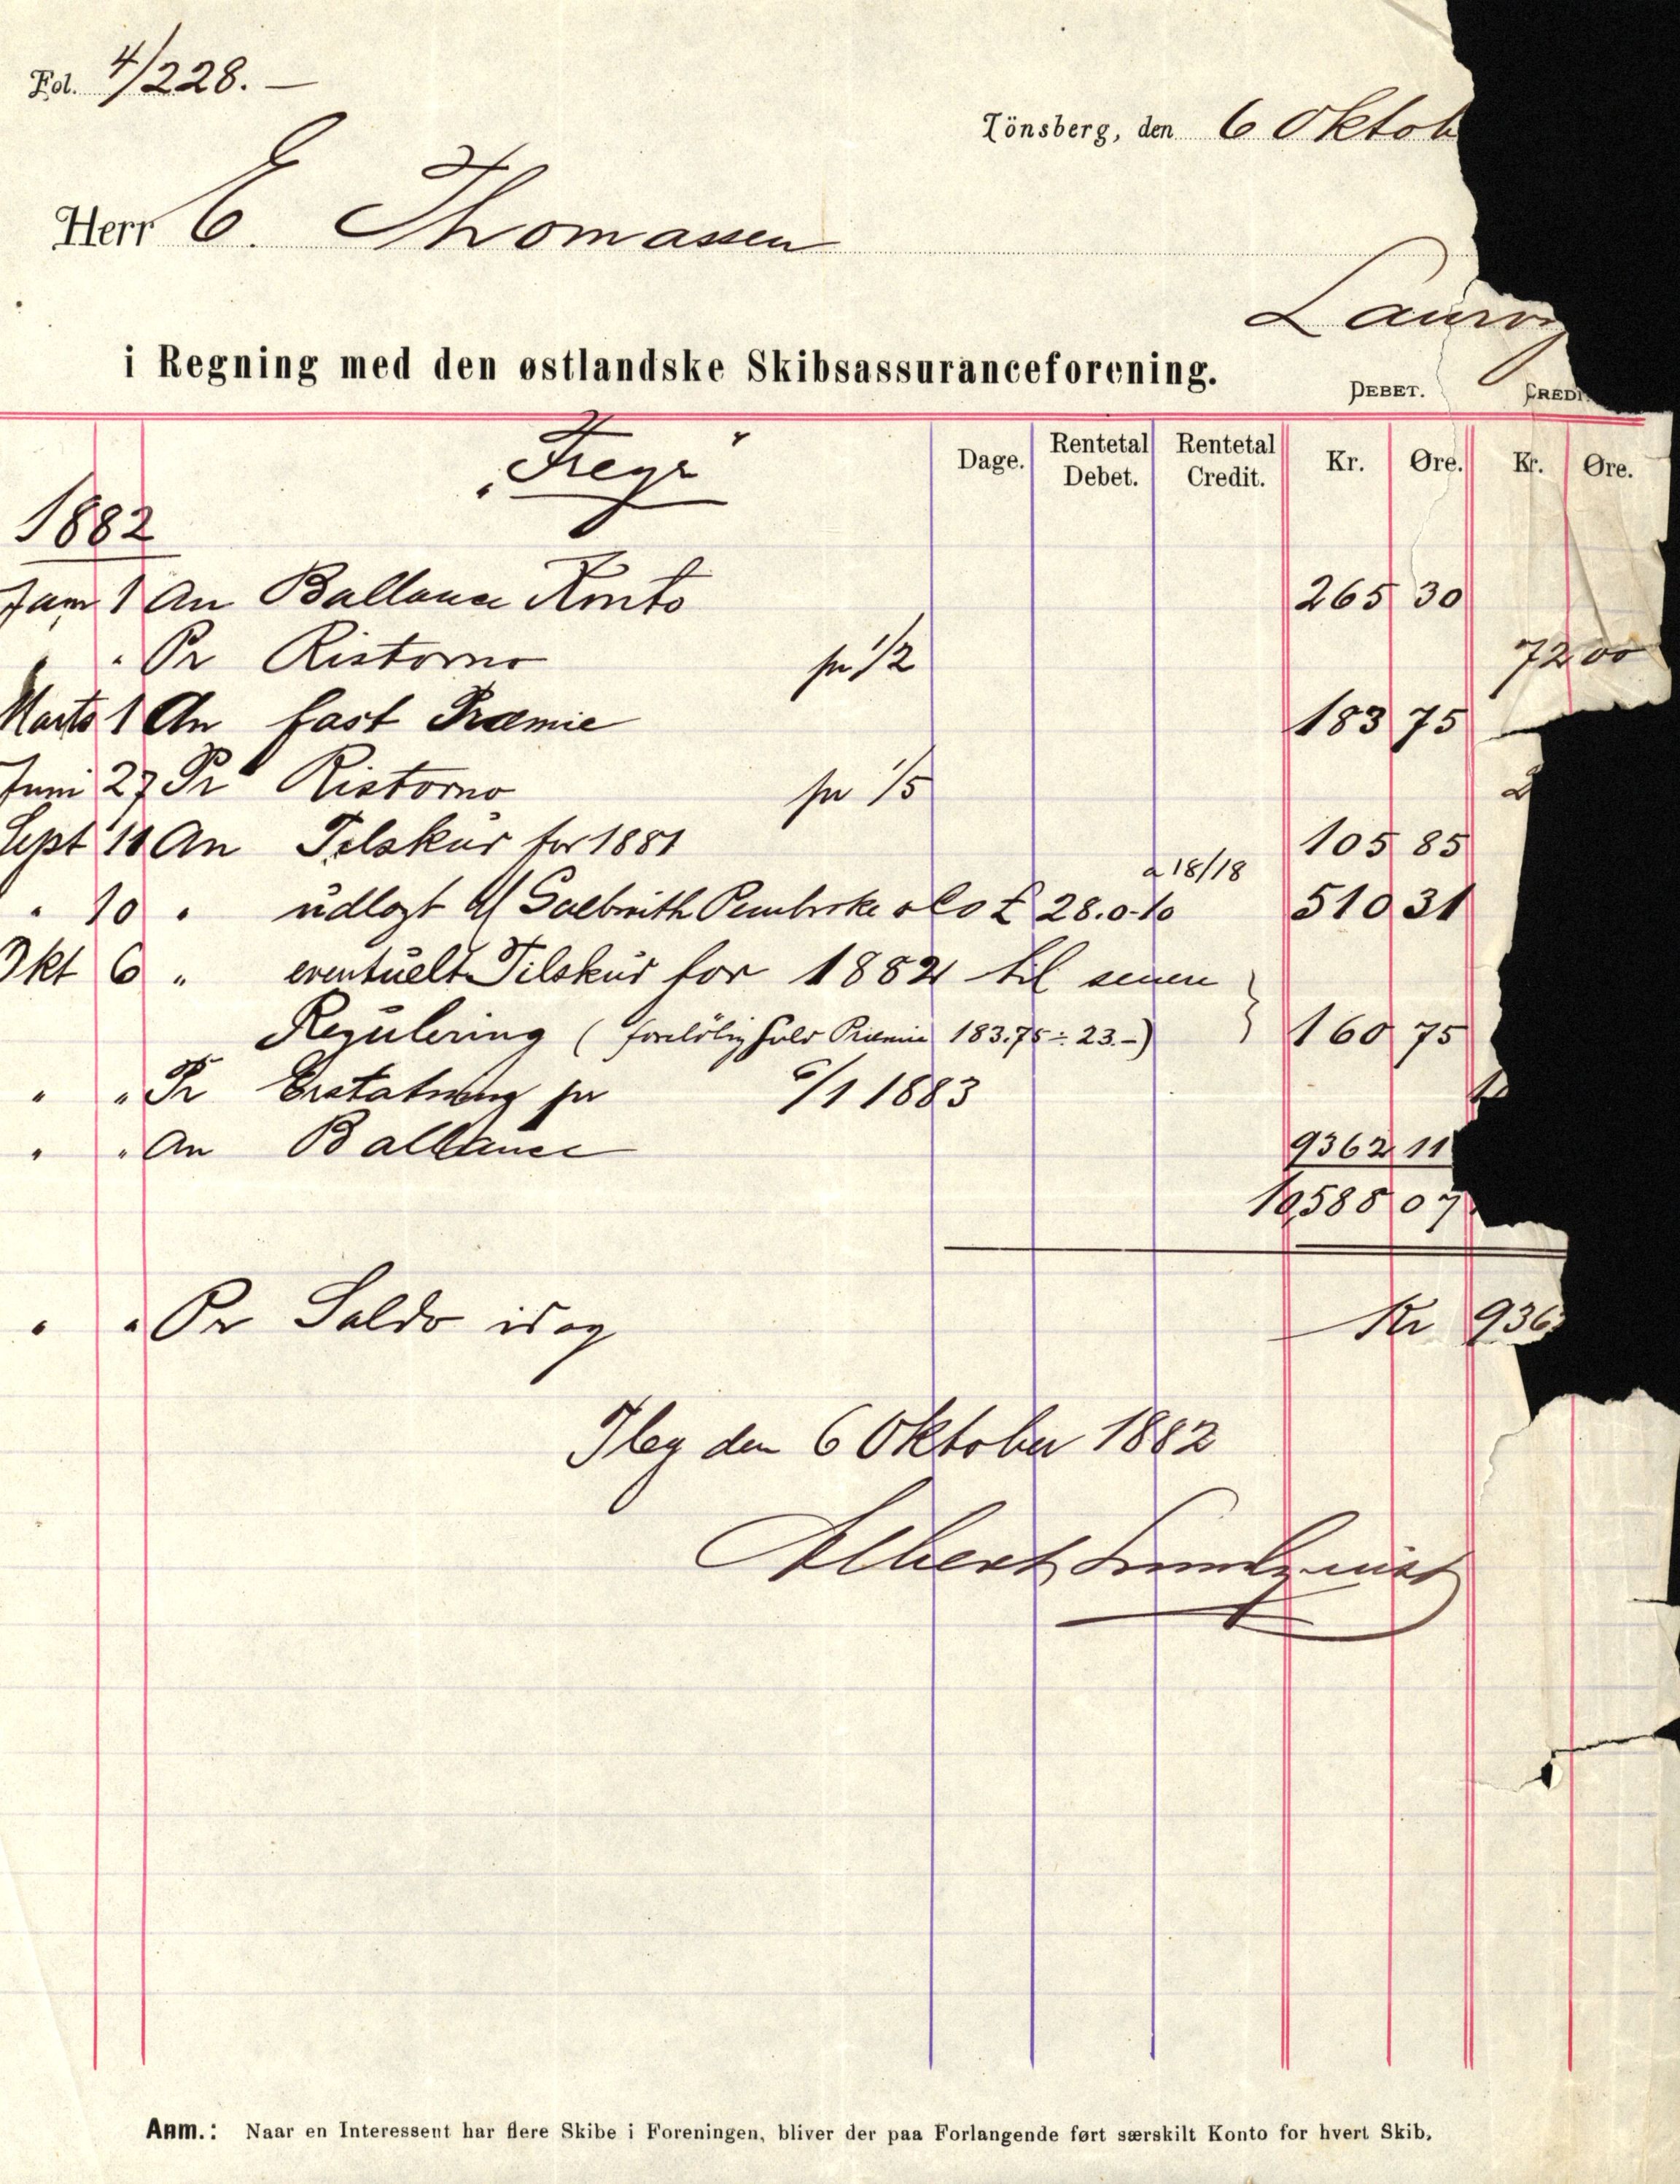 Fol. 4/228. —
Tönsberg, den 6 Oktob
Herr E. Thomassen
Laurvig
i Regning med den østlandske Skibsassuranceforening.
DEBET. CREDI
„Freyr“ Dage. Rentetal Debet. Rentetal Credit. Kr. Øre. Kr. Øre.
1882
Jan 1 An Ballance Konto 265 30
" Pr Ristorno pr 1/2 72 00
Marts 1 An fast Præmie 183 75
Juni 27 Pr Ristorno pr 1/5 2
Sept 10 An Tilskud for 1881 105 85
a 18/18
" 10 " udlagt til Galbraith Pembroke & Co £ 28.0.10 510 31
Okt 6 " eventuelt Tilskud for 1882 til senere
Regulering ( foreløbig halv Præmie 183.75 ÷ 23.-) 160 75
" " Pr Erstatning pr 6/1 1883
" " An Ballance 9362 11
10588 07
" " Pr Saldo idag Kr 936
Tbg den 6 Oktober 1882
Albert
Anm.: Naar en Interessent har flere Skibe i Foreningen, bliver der paa Forlangende ført særskilt Konto for hvert Skib.